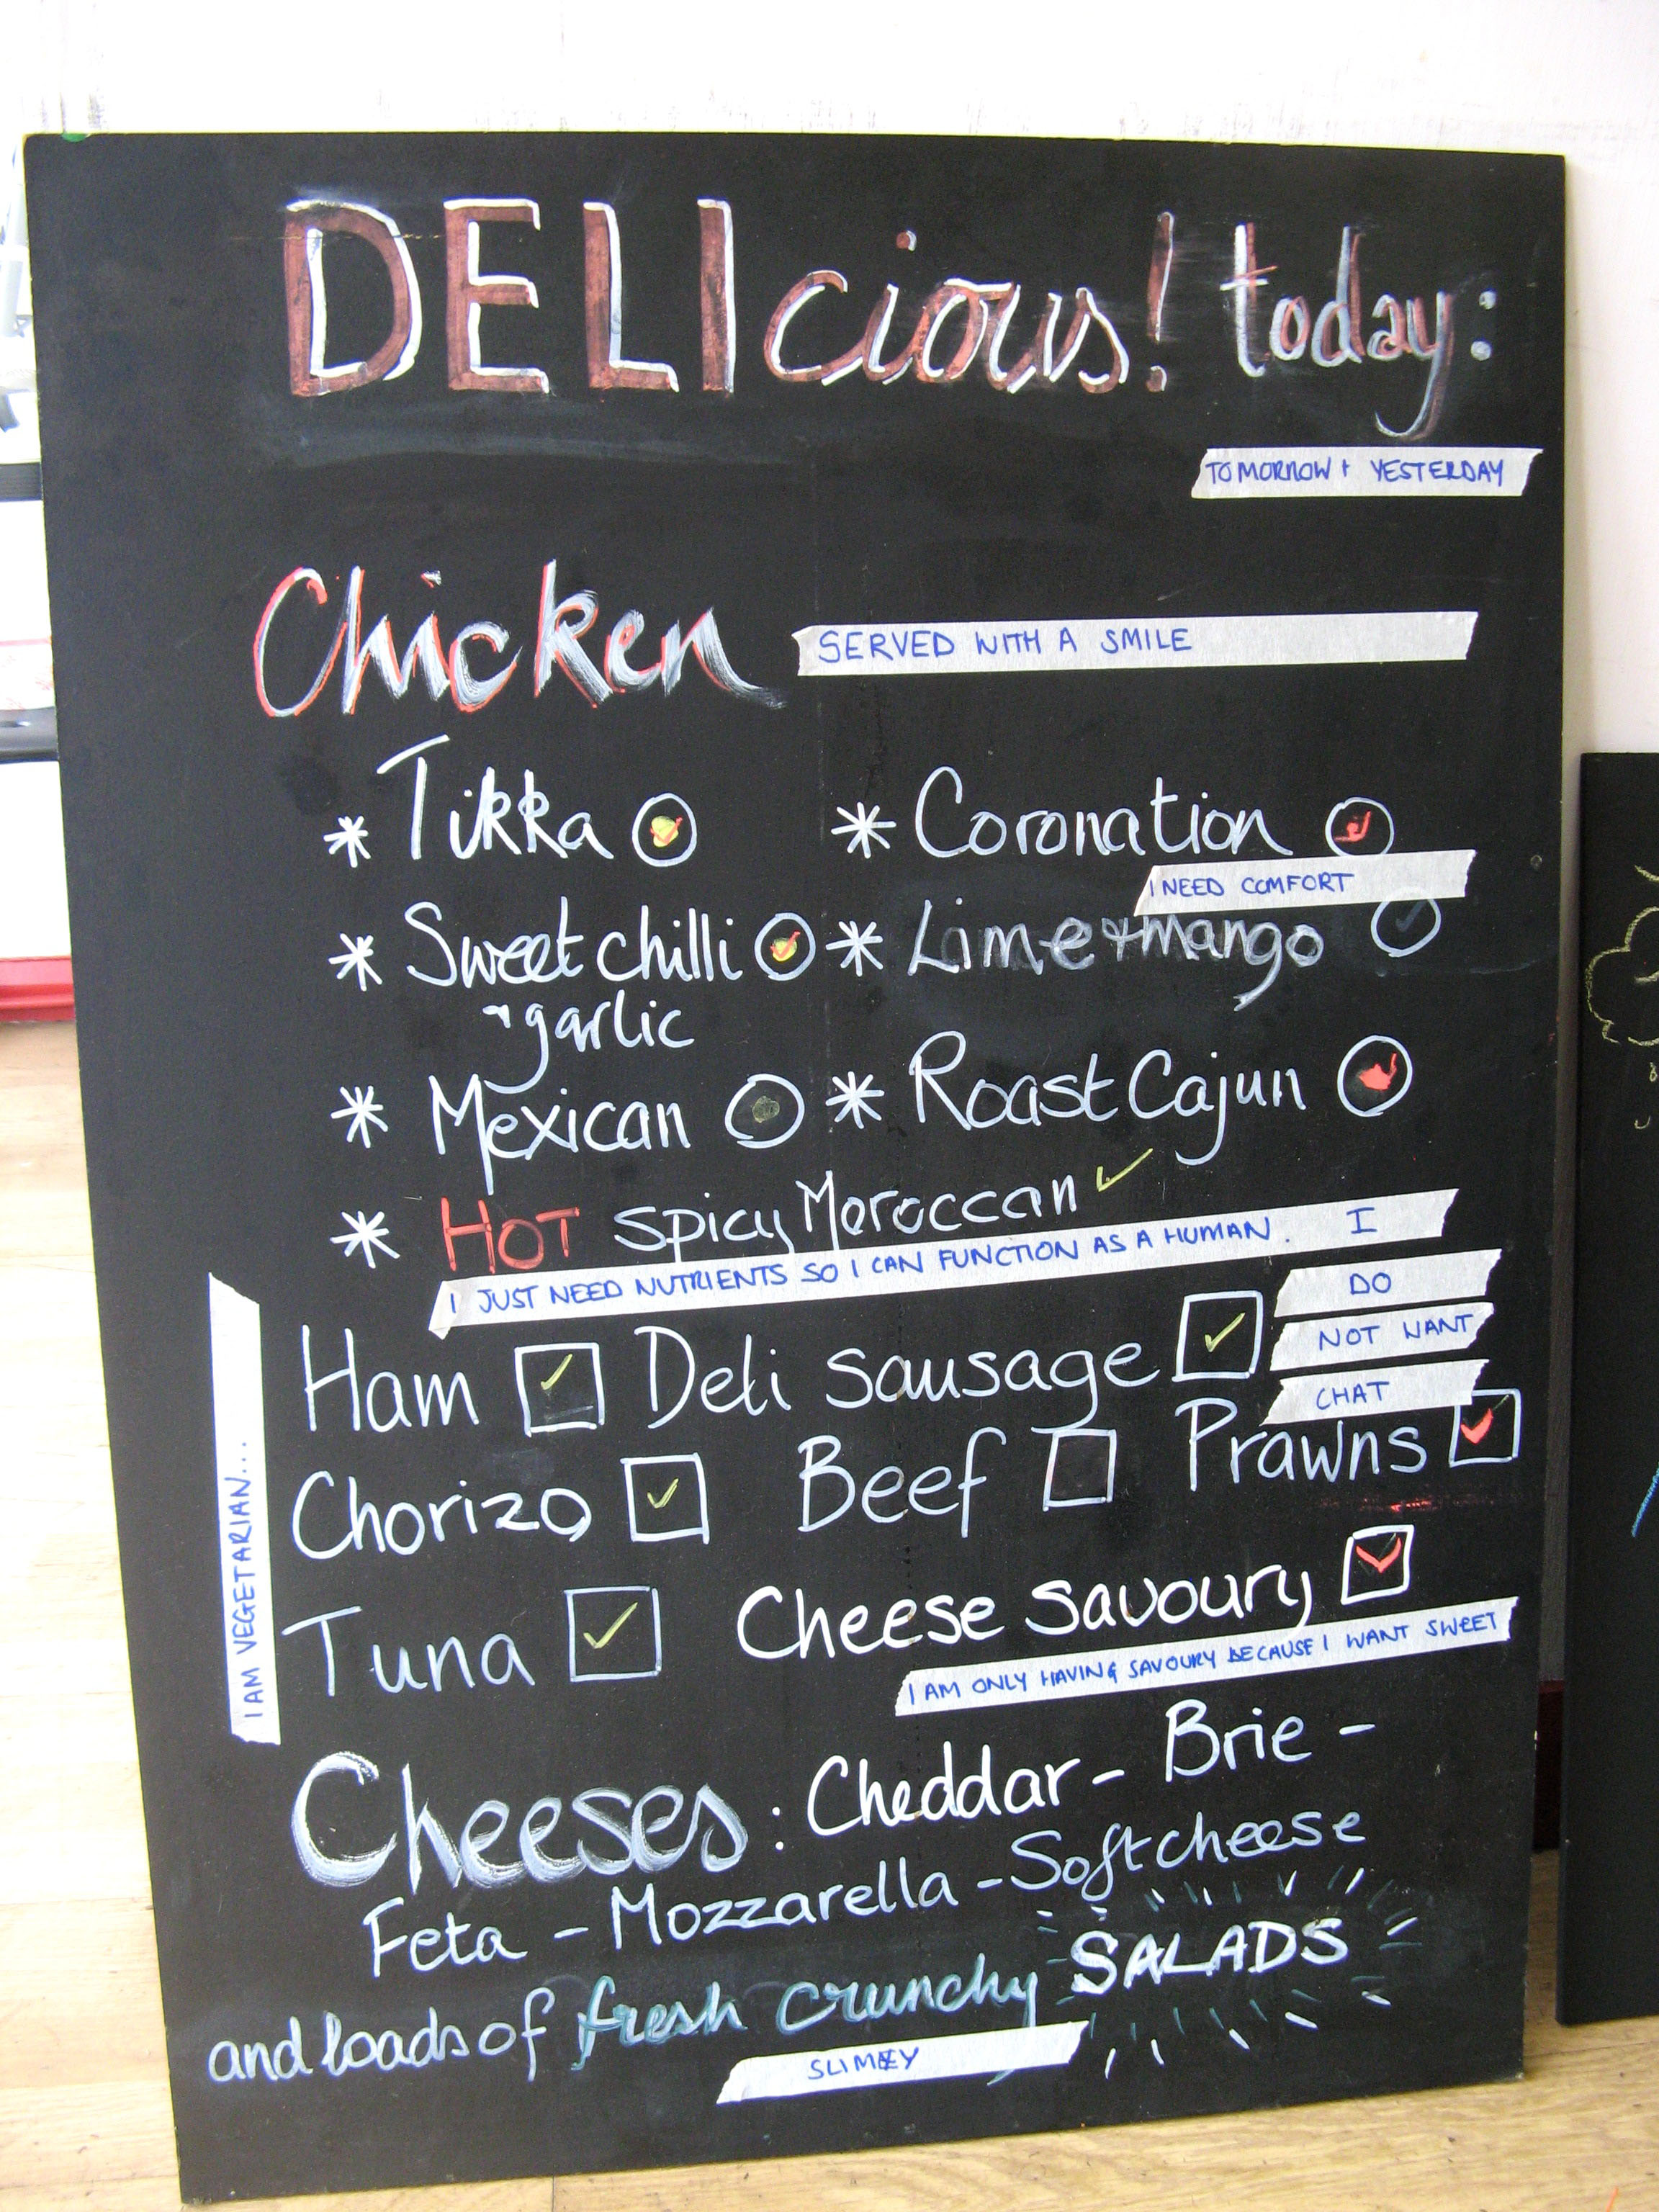 DELIcious! today:
TOMORROW + YESTERDAY
Chicken
SERVED WITH A SMILE
* Tikka
* Coronation
I NEED COMFORT
* Sweet chilli
garlic
* Lime + mango
* Mexican
* Roast Cajun
* HOT spicy Moroccan ✓
I JUST NEED NUTRIENTS SO I CAN FUNCTION AS A HUMAN. I
DO
NOT WANT
CHAT
Ham ✓ Deli sausage ✓
Chorizo ✓ Beef Prawns ✓
Tuna ✓ Cheese savoury ✓
I AM VEGETARIAN...
I AM ONLY HAVING SAVOURY BECAUSE I WANT SWEET
Cheeses: Cheddar - Brie -
Feta - Mozzarella - Soft cheese
and loads of fresh crunchy SALADS
SLIMEY